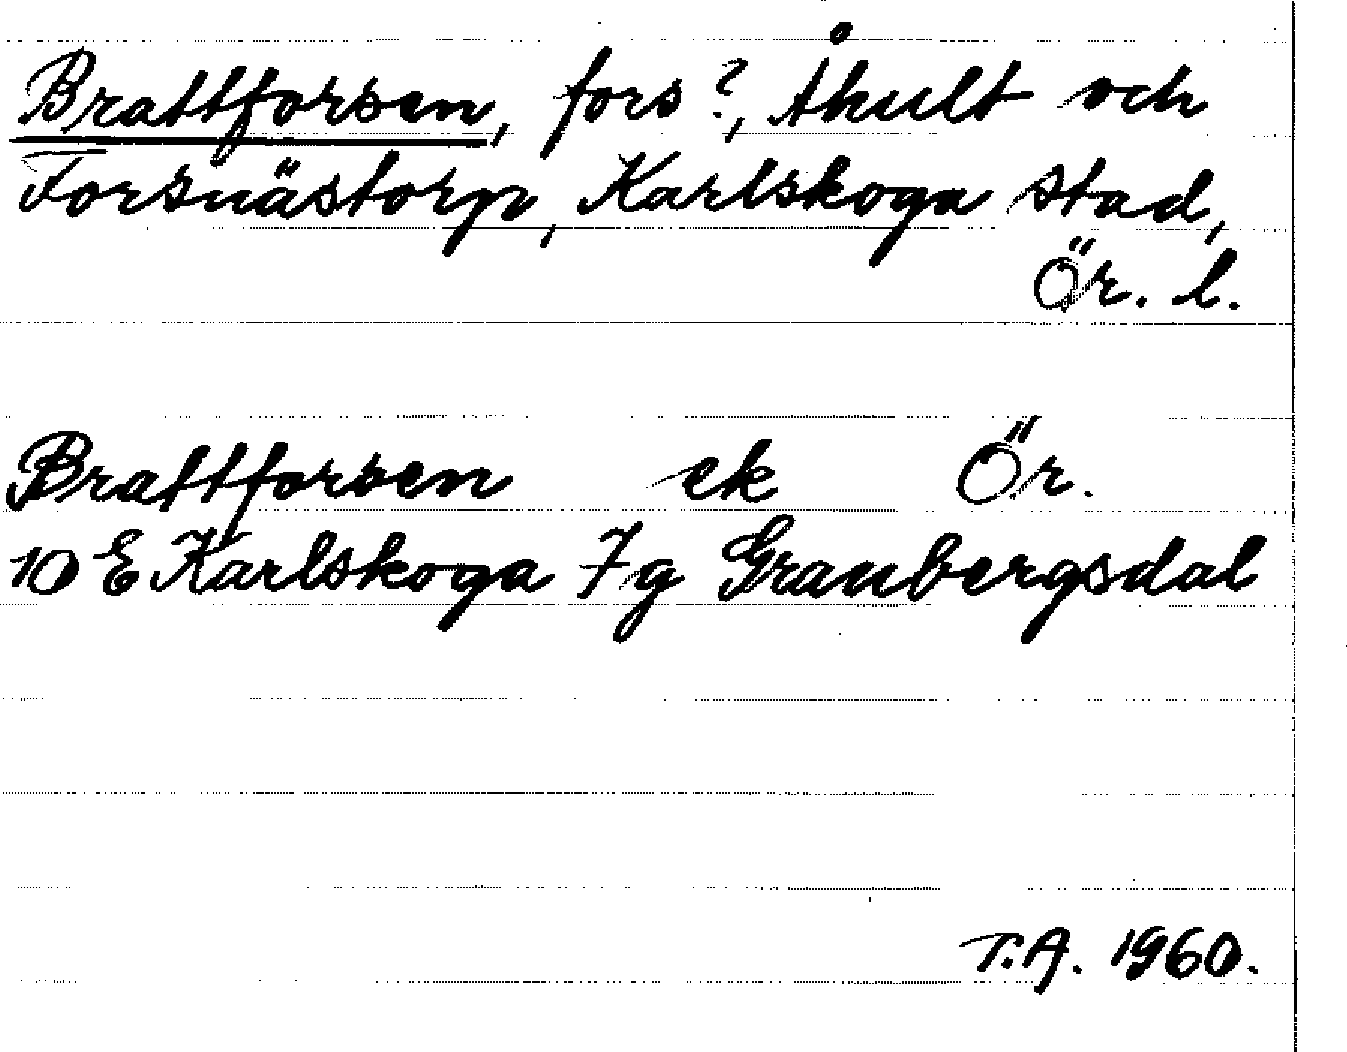 Brattforsen, fors?, Åhult och
Forsnästorp, Karlskoga stad,
Ör. l.
Brattforsen ek Ör.
10 E Karlskoga 7g Granbergsdal
T.A. 1960.